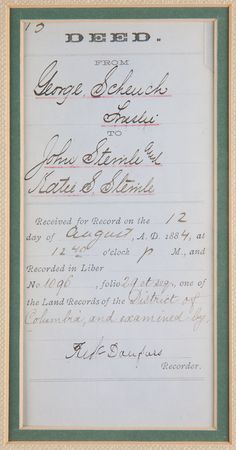 13
DEED.
FROM
George Scheuch
Trustee
TO
John Stemle and
Katie S. Stemle
Received for Record on the 12
day of August, A. D. 1884, at
12 40 o'clock P M., and
Recorded in Liber
No. 1096, folio 29 et seq., one of
the Land Records of the District of
Columbia, and examined by
Recorder.